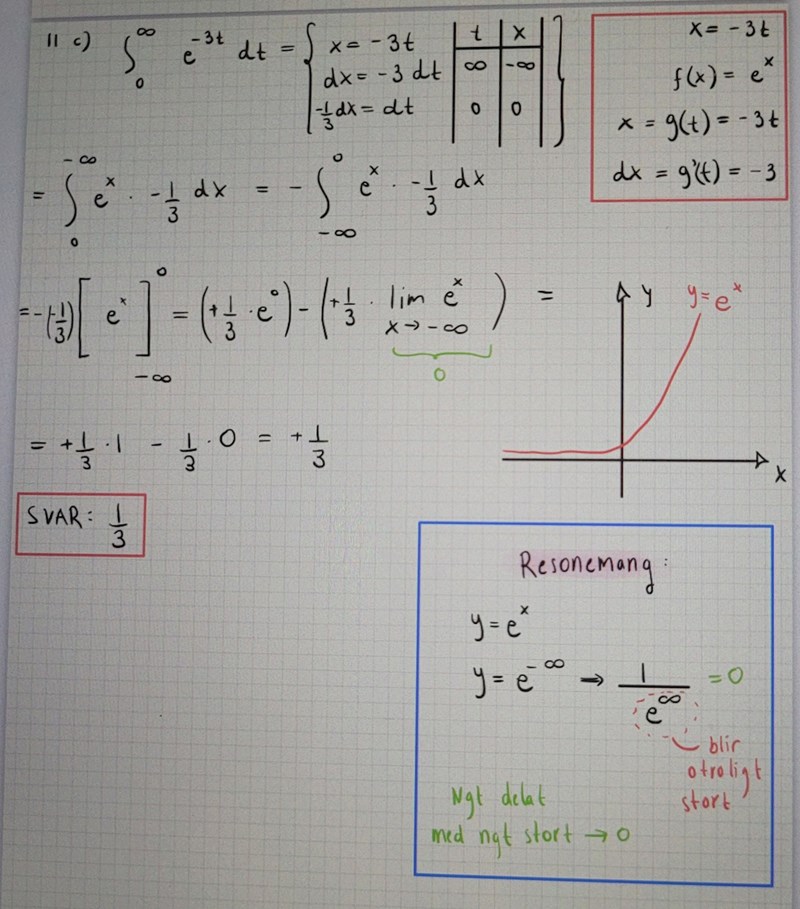 11 c) ∫₀^∞ e^(-3t) dt = { x = -3t
dx = -3 dt
-1/3 dx = dt
t | x
∞ | -∞
0 | 0 }
x = -3t
f(x) = e^x
x = g(t) = -3t
dx = g'(t) = -3
= ∫₀^(-∞) e^x · -1/3 dx = - ∫_(-∞)^0 e^x · -1/3 dx
= -(-1/3) [ e^x ]_(-∞)^0 = (+1/3 · e^0) - (+1/3 · lim_(x→-∞) e^x) =
0
y
y = e^x
x
= +1/3 · 1 - 1/3 · 0 = +1/3
SVAR: 1/3
Resonemang:
y = e^x
y = e^(-∞) → 1/e^∞ = 0
blir
otroligt
stort
Ngt delat
med ngt stort → 0